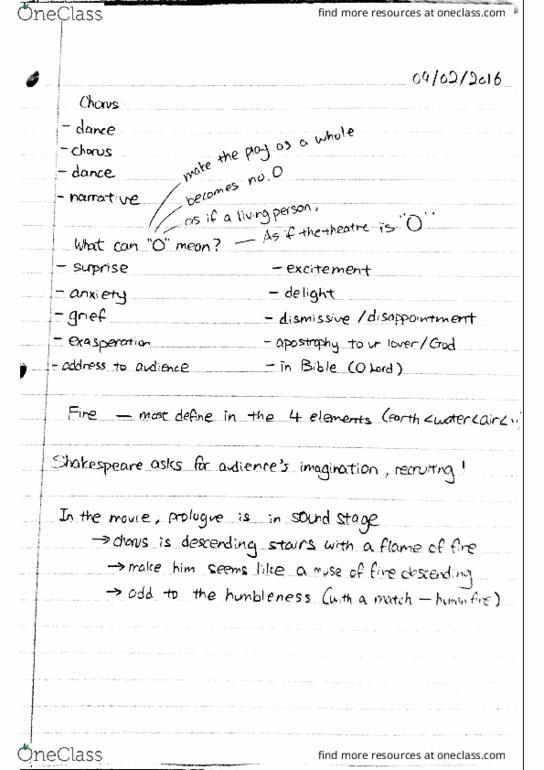 OneClass find more resources at oneclass.com
09/02/2016
Chorus
- dance
- chorus
- dance
- narrative
make the play as a whole
becomes no. O
as if a living person,
What can "O" mean? — As if the theatre is "O"
- suprise - excitement
- anxiety - delight
- grief - dismissive / disappointment
- exasperation - apostraphy to ur lover/God
- address to audience - in Bible (O Lord)
Fire — most define in the 4 elements (earth < water < air < ..)
Shakespeare asks for audience's imagination, recruiting !
In the movie, prologue is in sound stage
→ chorus is descending stairs with a flame of fire
→ make him seems like a muse of fire descending
→ add to the humbleness (with a match — human fire)
OneClass find more resources at oneclass.com